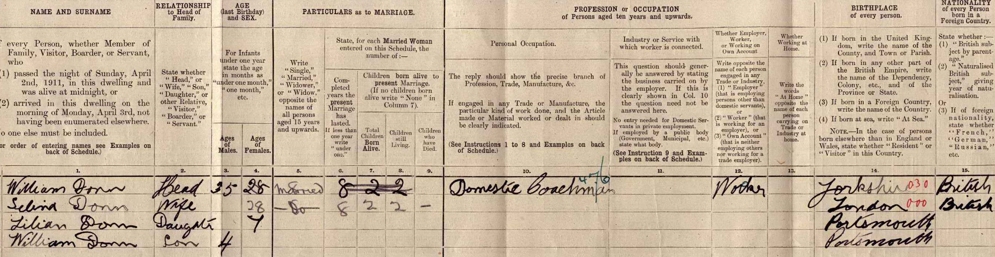 NAME AND SURNAME
RELATIONSHIP to Head of Family.
AGE (last Birthday) and SEX.
PARTICULARS as to MARRIAGE.
PROFESSION or OCCUPATION of Persons aged ten years and upwards.
BIRTHPLACE of every person.
NATIONALITY of every Person born in a Foreign Country.
f every Person, whether Member of
Family, Visitor, Boarder, or Servant,
who
(1) passed the night of Sunday, April
2nd, 1911, in this dwelling and
was alive at midnight, or
(2) arrived in this dwelling on the
morning of Monday, April 3rd, not
having been enumerated elsewhere.
o one else must be included.
or order of entering names see Examples on
back of Schedule.)
State whether
"Head," or
"Wife," "Son,"
"Daughter," or
other Relative,
"Visitor,"
"Boarder," or
"Servant."
For Infants
under one
year state
the age
in months
as "under
one month,"
"one month,"
etc.
Ages of Males.
Ages of Females.
Write
"Single,"
"Married,"
"Widower,"
or "Widow,"
opposite the
names of
all persons
aged 15 years
and upwards.
State, for each Married Woman
entered on this Schedule, the
number of:—
Completed years the present Marriage has lasted.
If less than one year write "under one."
Children born alive to
present Marriage.
(If no children born
alive write "None" in
Column 7).
Total Children Born Alive.
Children still Living.
Children who have Died.
Personal Occupation.
The reply should show the precise branch of
Profession, Trade, Manufacture, &c.
If engaged in any Trade or Manufacture, the
particular kind of work done, and the Article
made or Material worked or dealt in should
be clearly indicated.
(See Instructions 1 to 8 and Examples on back of
Schedule.)
Industry or Service with
which worker is connected.
This question should generally
be answered by stating
the business carried on by
the employer. If this is
clearly shown in Col. 10
the question need not be
answered here.
No entry needed for Domestic Servants
in private employment.
If employed by a public body
(Government, Municipal, etc.)
state what body.
(See Instruction 9 and Examples
on back of Schedule.)
Whether Employer,
Worker,
or Working on
Own Account
Whether
Working at
Home.
(1) If born in the United Kingdom,
write the name of the
County, and Town or Parish.
(2) If born in any other part of
the British Empire, write the
name of the Dependency,
Colony, etc., and of the
Province or State.
(3) If born in a Foreign Country,
write the name of the Country.
(4) If born at sea, write "At Sea."
NOTE.—In the case of persons
born elsewhere than in England or
Wales, state whether "Resident" or
"Visitor" in this Country.
1. 2. 3. 4. 5. 6. 7. 8. 9. 10. 11. 12. 13. 14. 15.
William Donn Head 35 28 Married 8 2 2 Domestic Coachman 476 Worker Yorkshire 030 British
Selina Donn Wife 28 Do 8 2 2 – London 000 British
Lilian Donn Daughter 7 Portsmouth
William Donn Son 4 Portsmouth